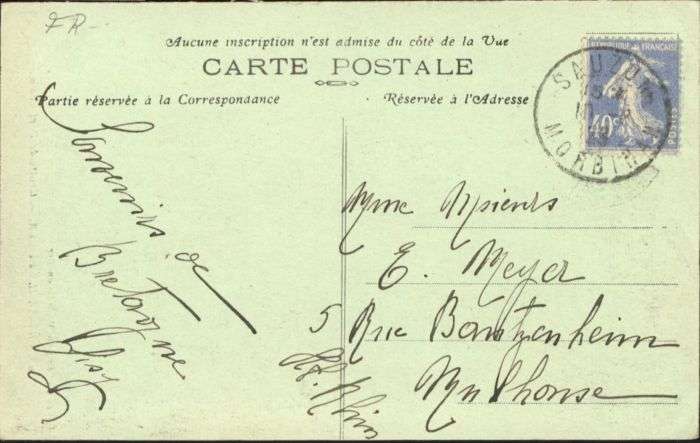 FR
Aucune inscription n'est admise du côté de la Vue
CARTE POSTALE
Partie réservée à la Correspondance
Réservée à l'Adresse
Souvenirs de
Bretagne
REPUBLIQUE FRANÇAISE
40c
POSTES
SAUZON
MORBIHAN
Mme
E. Meyer
5 Rue Bantzenheim
Mulhouse
Ht. Rhin